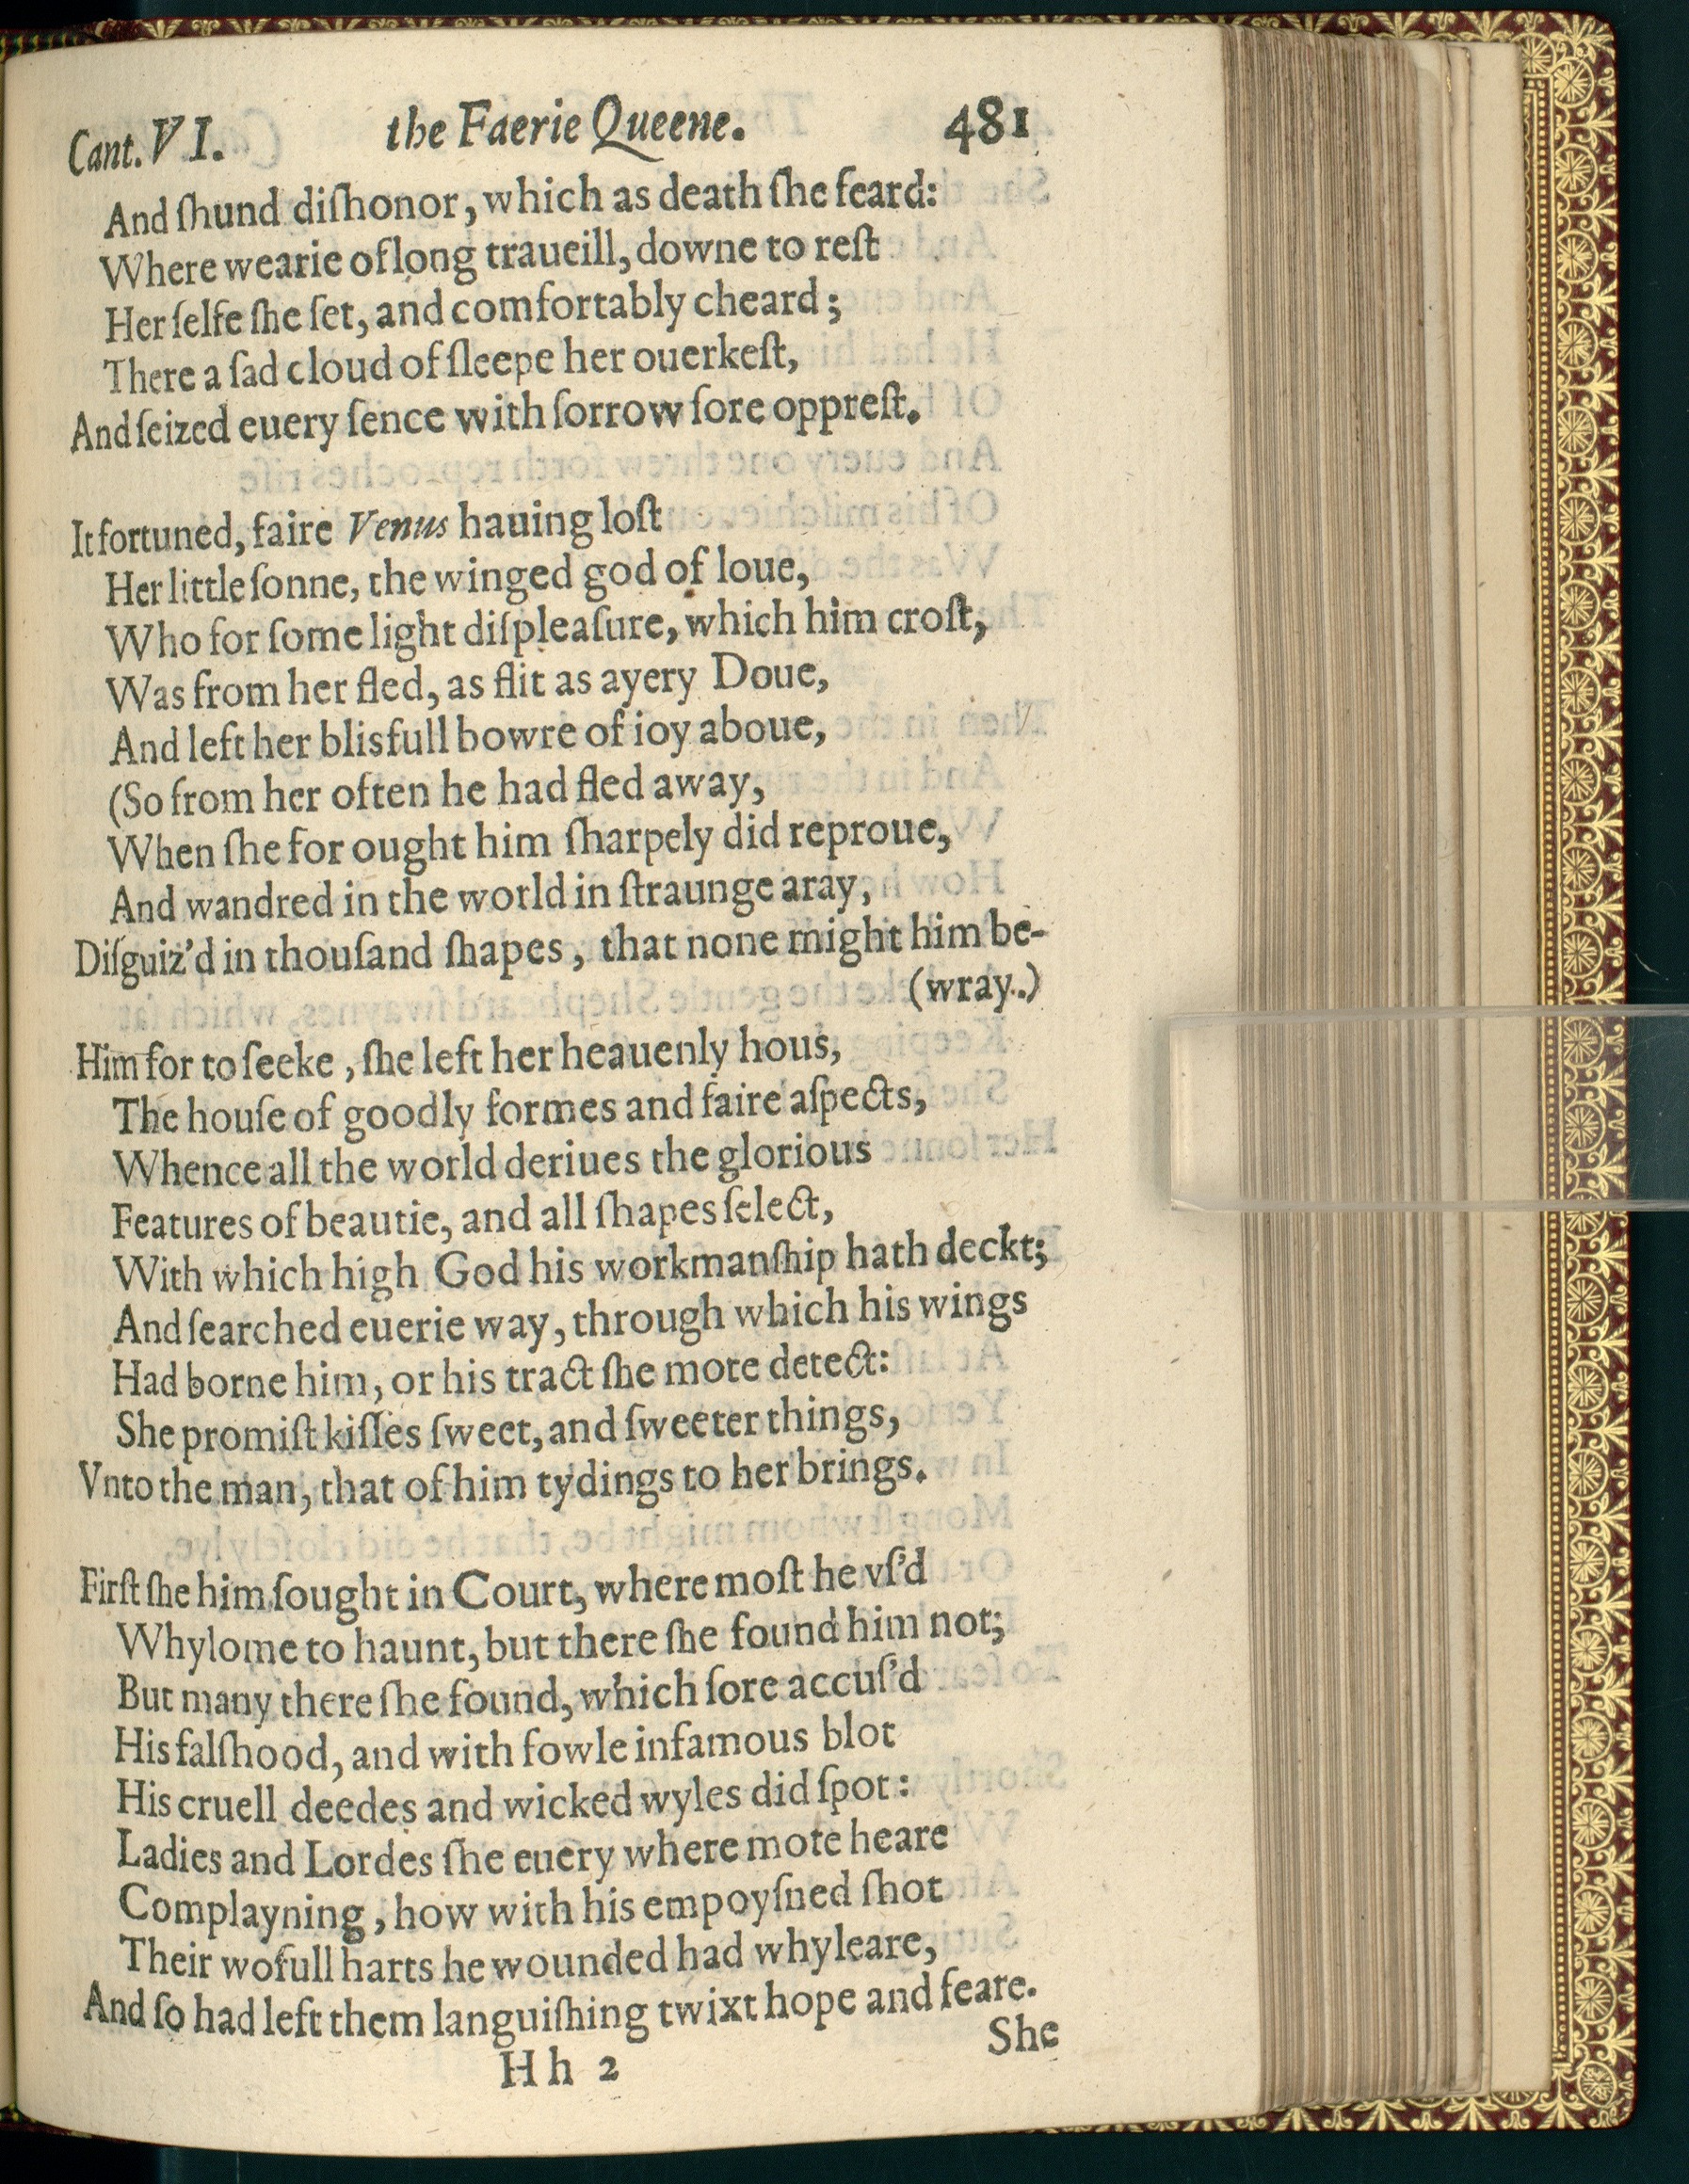 Cant. VI. the Faerie Queene. 481
And ſhund diſhonor, which as death ſhe feard:
Where wearie of long traueill, downe to reſt
Her ſelfe ſhe ſet, and comfortably cheard;
There a ſad cloud of ſleepe her ouerkeſt,
And ſeized euery ſence with ſorrow ſore oppreſt.
It fortuned, faire Venus hauing loſt
Her little ſonne, the winged god of loue,
Who for ſome light diſpleaſure, which him croſt,
Was from her fled, as flit as ayery Doue,
And left her blisfull bowre of ioy aboue,
(So from her often he had fled away,
When ſhe for ought him ſharpely did reproue,
And wandred in the world in ſtraunge aray,
Diſguiz'd in thouſand ſhapes, that none might him be-
(wray.)
Him for to ſeeke, ſhe left her heauenly hous,
The houſe of goodly formes and faire aſpects,
Whence all the world deriues the glorious
Features of beautie, and all ſhapes ſelect,
With which high God his workmanſhip hath deckt;
And ſearched euerie way, through which his wings
Had borne him, or his tract ſhe mote detect:
She promiſt kiſſes ſweet, and ſweeter things,
Vnto the man, that of him tydings to her brings.
Firſt ſhe him ſought in Court, where moſt he vſ'd
Whylome to haunt, but there ſhe found him not;
But many there ſhe found, which ſore accuſ'd
His falſhood, and with fowle infamous blot
His cruell deedes and wicked wyles did ſpot:
Ladies and Lordes ſhe euery where mote heare
Complayning, how with his empoyſned ſhot
Their wofull harts he wounded had whyleare,
And ſo had left them languiſhing twixt hope and feare.
She
Hh 2